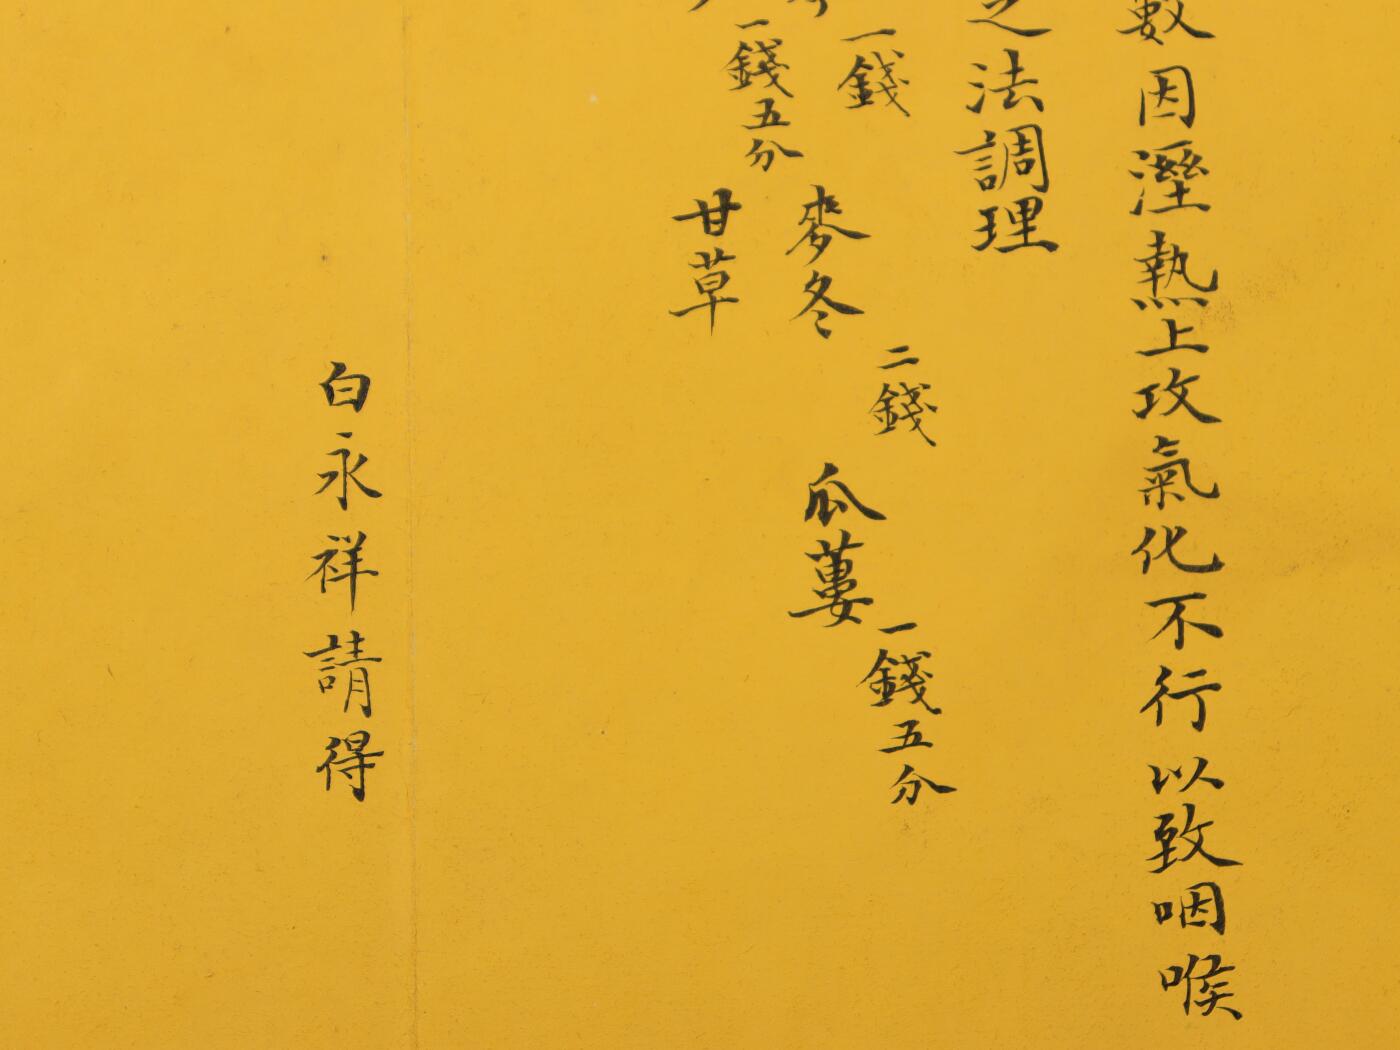 數因溼熱上攻氣化不行以致咽喉
之法調理
一錢 麥冬 二錢 瓜蔞 一錢五分
一錢五分 甘草
白永祥請得